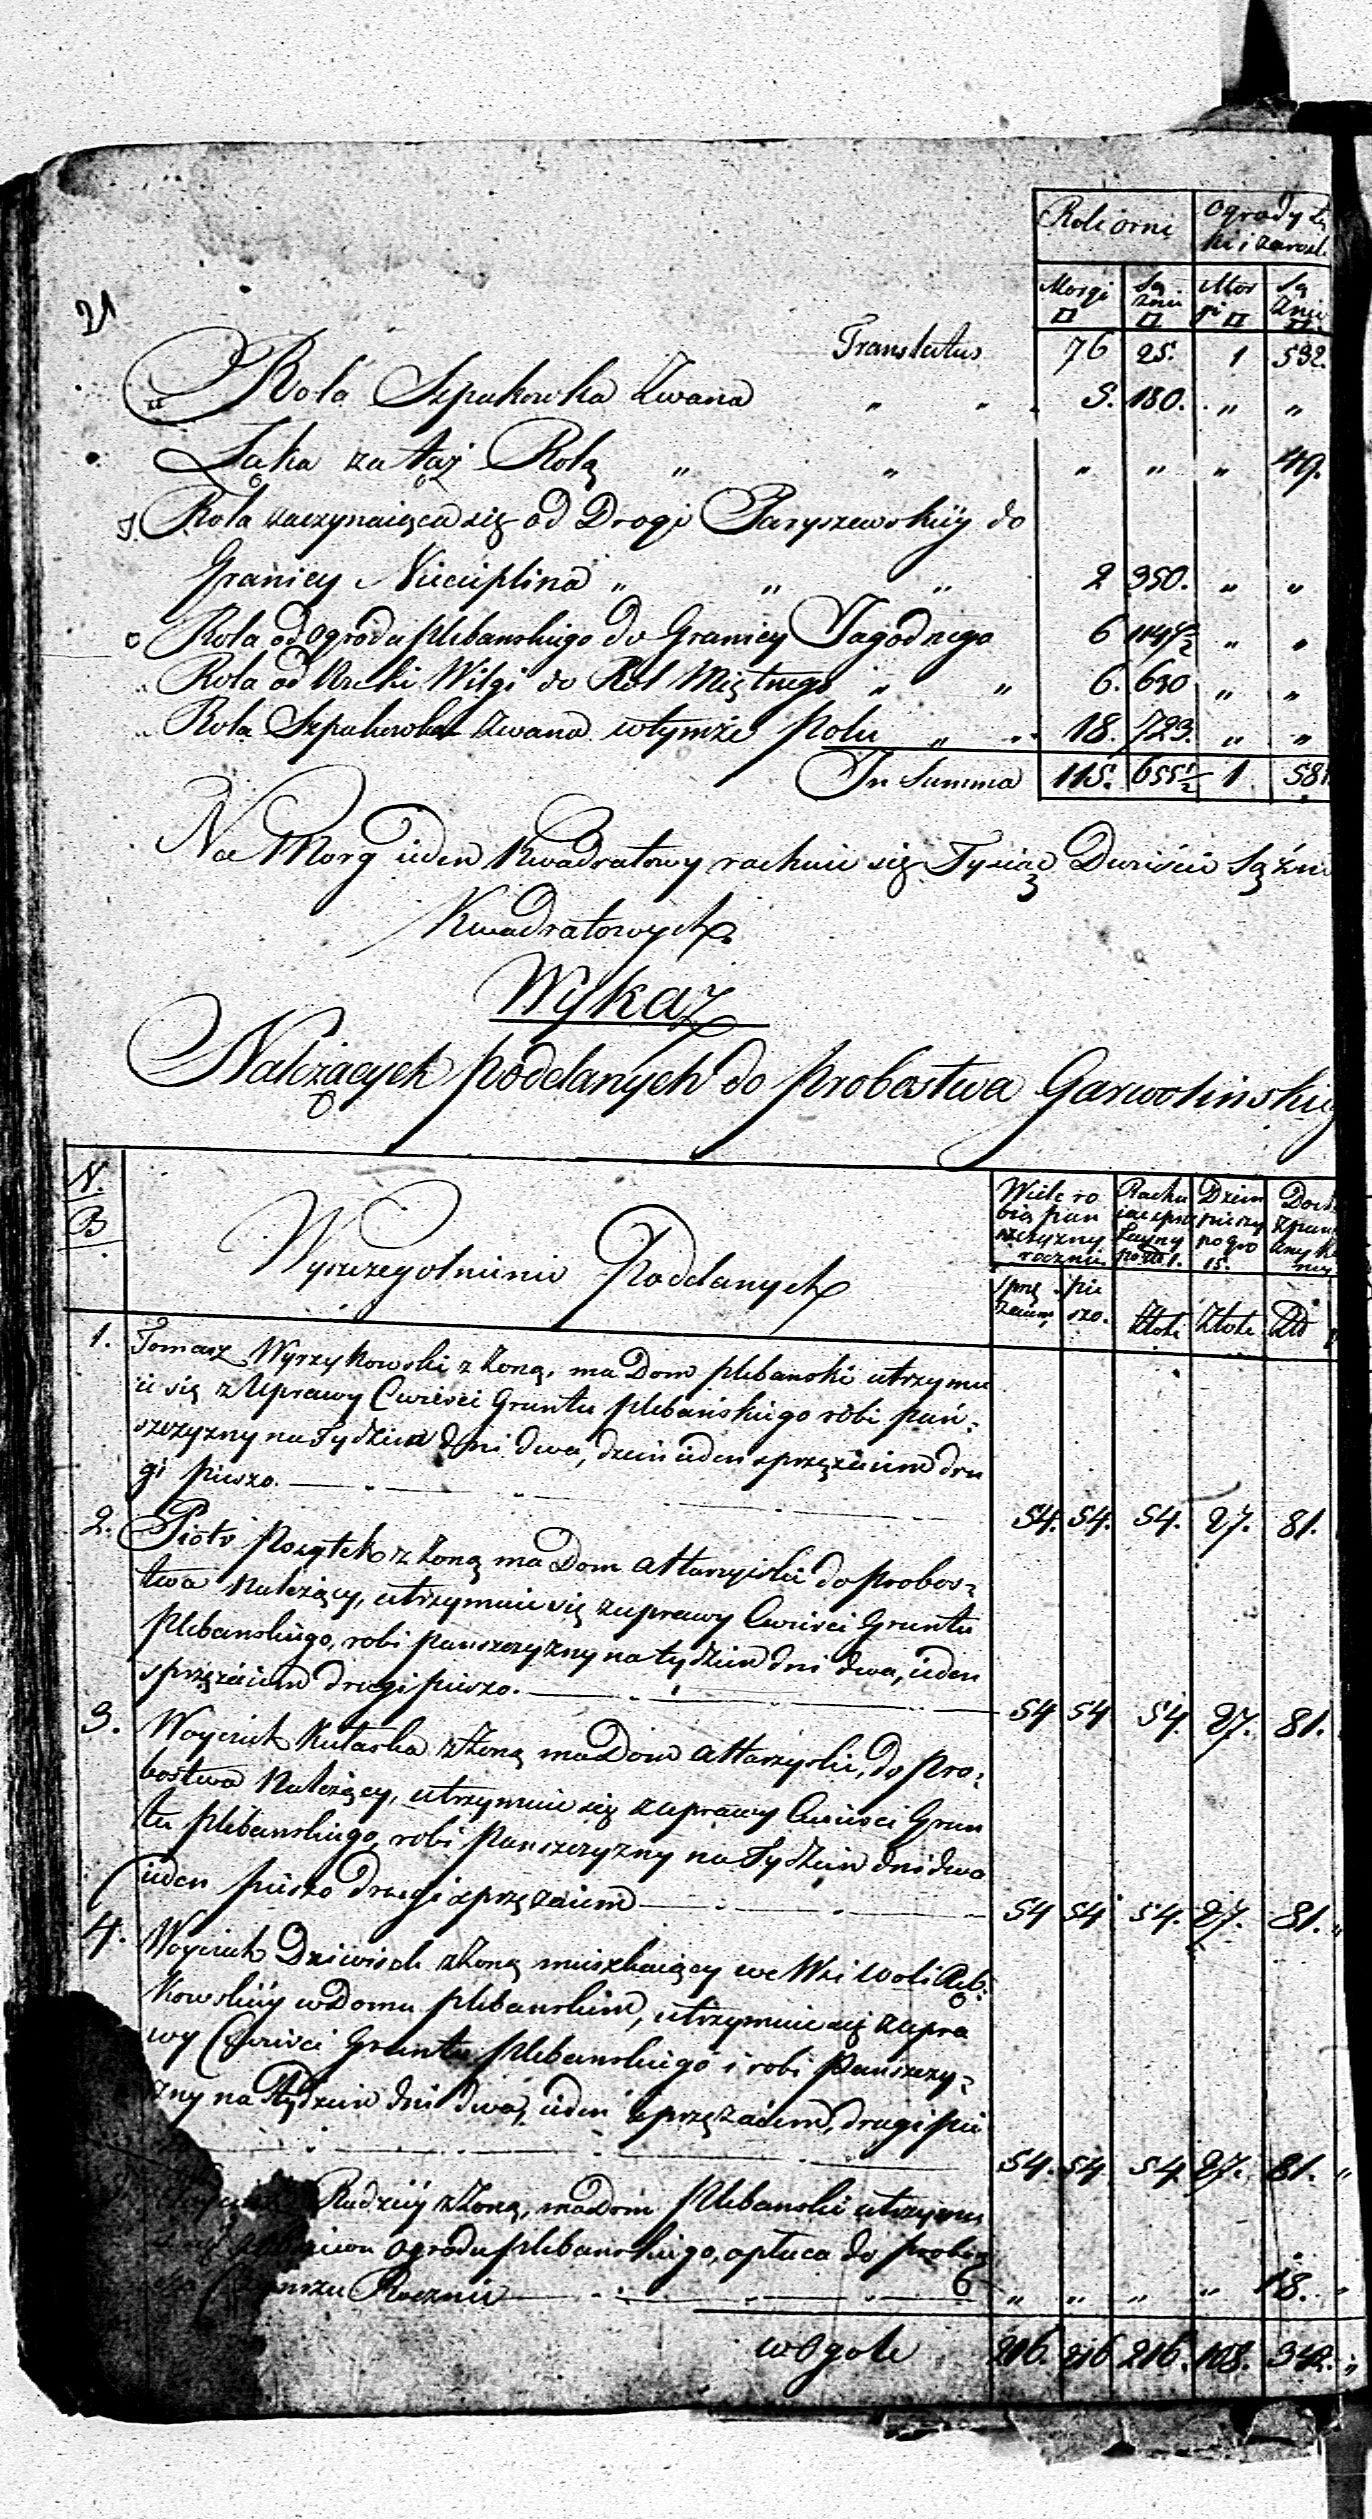 Roli orni Ogrody Łą
ki i zarośl
Morgi □ Są żnii □ Mor gi □ Są żnii □
21
Translatus 76 25. 1 532.
„ Rola Szpakowka Zwana „ „ 5. 180. „ „
Łąka za tąż Rolą „ „ „ „ „ 49.
Rola zaczynaiąca się od Drogi Paryszewskiiy do
Granicy Niecieplina „ „ „ 2 350. „ „
Rola od Ogrodu plebanskiego do Granicy Jagodnego 6 „ „
„ Rola od Rzeki Wilgi do Rol Miętnego „ „ 6. 630 „ „
„ Rola Szpakowka Zwana wtymże polu „ „ 18. 723. „ „
In Summa 115. 655½ 1 581
Na Morg ieden Kwadratowy rachuie się Tysiąc Dwieście Sążni
Kwadratowych.
Wykaz
Należących poddanych do probostwa Garwolinskieg
N. B. Wyszczegolnienie Poddanych
Wiele ro
bią pan
szczyzny
rocznie
sprzę
żaiem pie
szo.
Złote Złote Zło
1. Tomasz Wyrzykowski z Żoną, ma Dom plebanski utrzymu
ie się z Uprawy Cwierci Gruntu plebańskiego robi pań-
szczyzny na Tydzien dni dwa, dzień ieden sprzężaiem dru
gi pieszo. 54. 54. 54. 27. 81.
2. Piotr Pożytek z Żoną ma Dom Altaryiski do probos-
twa należący, utrzymuie się zuprawy Cwierci Gruntu
Plebanskiego, robi panszczyzny na tydzien dni dwa, ieden
sprzężaiem drugi pieszo. 54 54 54. 27. 81.
3. Woyciech Kutaska z Żoną ma Dom Altarzyski, do pro-
bostwa należący, utrzymuie się zuprawy Cwierci Grun
tu plebanskiego, robi Panszczyzny na Tydzien dni dwa
ieden pieszo drugi sprzężaiem 54 54 54. 27. 81. „
4. Woyciech Dziwisch z Żoną mieszkaiący we Wsi Woli Ręb-
kowskiiy w Domu plebanskim, utrzymuie się zupra
wy Cwierci Gruntu plebanskiego i robi Panszczy-
zny na Tydzien dni dwa, ieden sprzężaiem, drugi pie
54. 54 54 27. 81. „
Rudziiy z Żoną, ma Dom Plebanski utrzymu
ogrodu plebanskiego, opłaca do probos
Czynszu Rocznie 6 „ „ „ „ 18. „
w Ogole 216. 216 216. 108. 342. „